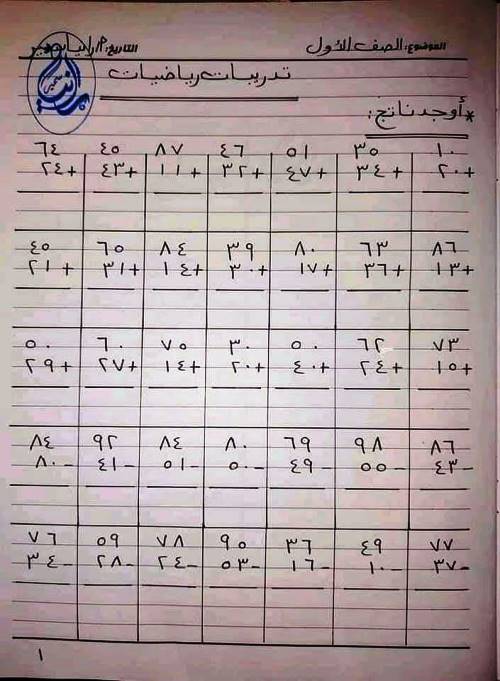 الموضوع: الصف الأول التاريخ: م/رانيا سمير
تدريبات رياضيات
*أوجد ناتج:
١٠ ٣٥ ٥١ ٤٦ ٨٧ ٤٥ ٦٤
٢٠+ ٣٤+ ٤٧+ ٣٢+ ١١+ ٤٣+ ٢٤+
٨٦ ٦٣ ٨٠ ٣٩ ٨٤ ٦٥ ٤٥
١٣+ ٣٦+ ١٧+ ٣٠+ ١٤+ ٣١+ ٢١+
٧٣ ٦٢ ٥٠ ٣٠ ٧٥ ٦٠ ٥٠
١٥+ ٢٤+ ٤٠+ ٢٠+ ١٤+ ٢٧+ ٢٩+
٨٦ ٩٨ ٦٩ ٨٠ ٨٤ ٩٢ ٨٤
٤٣- ٥٥- ٤٩- ٥٠- ٥١- ٤١- ٨٠-
٧٧ ٤٩ ٣٦ ٩٥ ٧٨ ٥٩ ٧٦
٣٧- ١٠- ١٦- ٥٣- ٢٤- ٢٨- ٣٤-
١